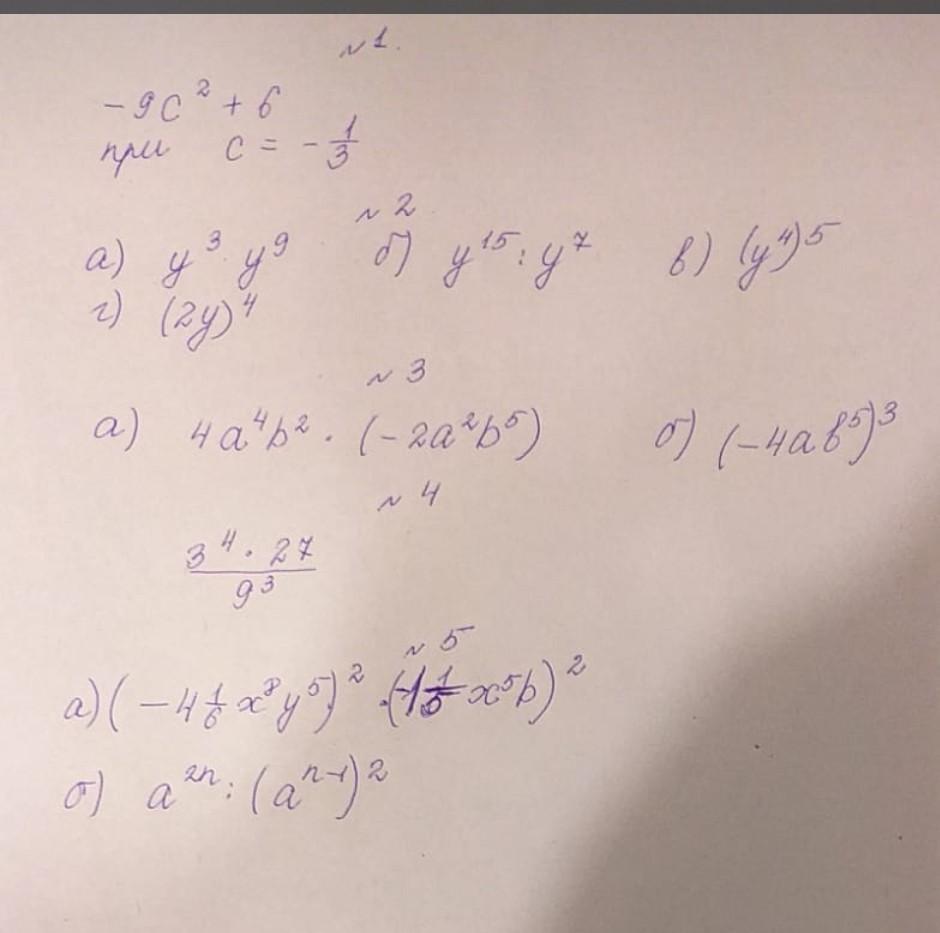 №1.
-9c² + 6
при c = -1/3
№2
а) y³ · y⁹ б) y¹⁵ : y⁷ в) (y⁴)⁵
г) (2y)⁴
№3
а) 4a⁴b² · (-2a²b⁵) б) (-4ab⁵)³
№4
3⁴ · 27
9³
№5
а) (-4 1/6 x⁸y⁵)² · (-1 1/5 x⁵b)²
б) a²ⁿ : (aⁿ⁻¹)²